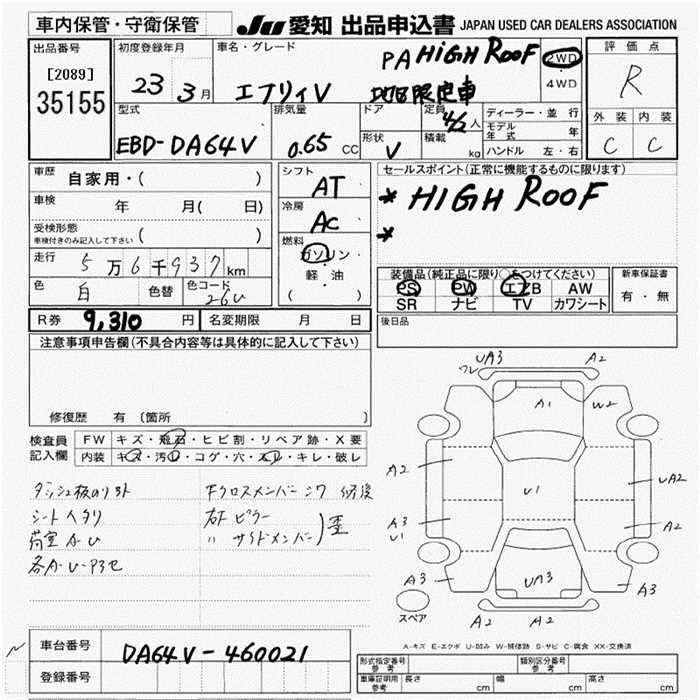 車内保管・守衛保管 JU 愛知 出品申込書 JAPAN USED CAR DEALERS ASSOCIATION
出品番号 初度登録年月 車名・グレード 評価点
[2089] 35155 23年 3月 エブリィV PA HIGH ROOF 2WD ・ 4WD R
型式 排気量 ドア 定員 4/2人 ディーラー・並行 外装 内装
EBD-DA64V 0.65 CC 形状 V 積載 kg モデル年式 年 C C
ハンドル 左・右
車歴 自家用・( ) シフト AT セールスポイント(正常に機能するものに限ります)
車検 年 月( 日) 冷房 AC * HIGH ROOF
受検形態 車検付きのみ記入して下さい ( ) 燃料 ガソリン・軽油 ( ) *
走行 5万6千937km 装備品(純正品に限り○をつけてください) 新車保証書
色 白 色替 色コード 26U PS PW エアB AW 有・無
SR ナビ TV カワシート
R券 9,310円 名変期限 月 日 後日品
注意事項申告欄(不具合内容等は具体的に記入して下さい)
修復歴 有 (箇所 )
検査員記入欄 FW キズ・飛石・ヒビ割・リペア跡・X要
内装 キズ・汚レ・コゲ・穴・スレ・キレ・破レ
シートヘタリ
荷室A・U
Fクロスメンバー
ピラー
サイドメンバー
UA3 A2
ワレ
A1 W2
A2 U1 A2
A3 U1 A2
A3 UA3 A3
スペア A2 A2
A-キズ E-エクボ U-凹み W-補修跡 S-サビ C-腐食 XX-交換済
車台番号 DA64V-460021
登録番号
形式指定番号 参考 類別区分番号 参考
車庫証明用 参考 長さ cm 幅 cm 高さ cm